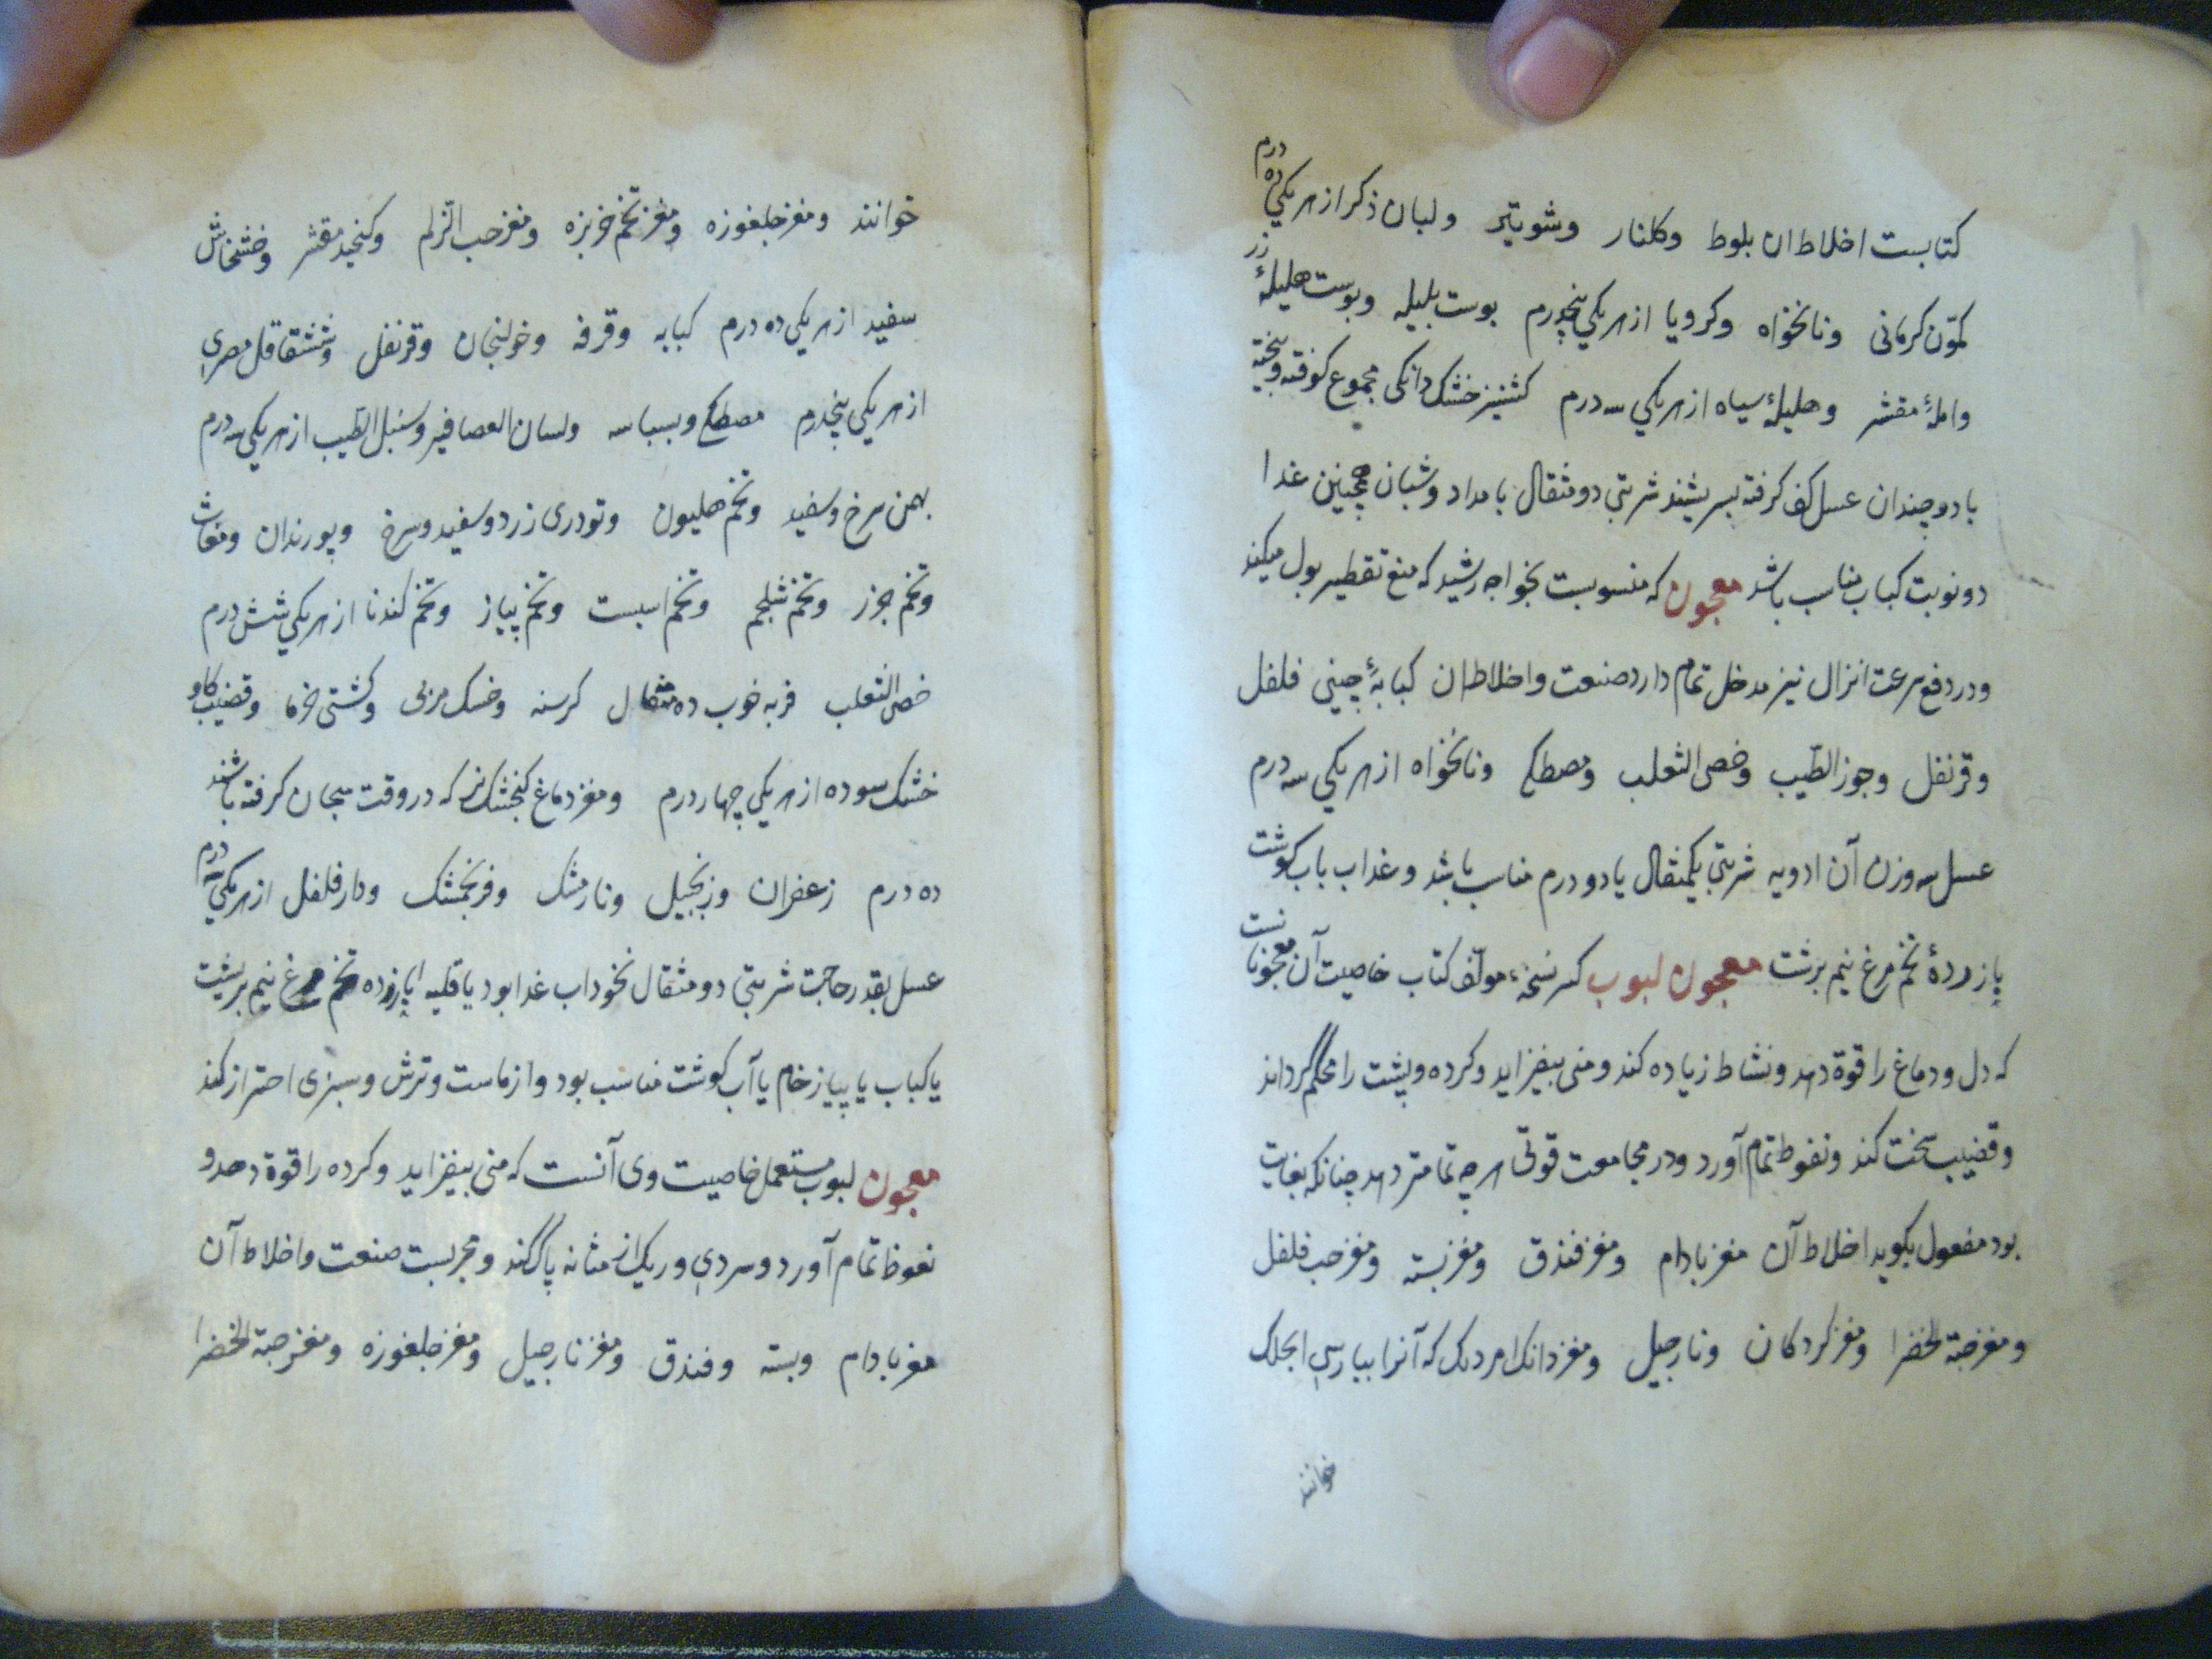 کتابست اخلاط ان بلوط وکلنار وشونیز ولبان ذکر از هریکی ده درم
کمّون کرمانی ونانخواه وکرویا از هریکی پنجدرم پوست بلیله وپوست هلیلهٔ زرد
واملهٔ مقشر وهلیلهٔ سیاه از هریکی سه درم کشنیز خشک دانکی مجموع کوفته وبیخته
با دو چندان عسل کف کرفته بسریشند شربتی دو مثقال بامداد وشبان همچنین غدا
دو نوبت کباب مناسب باشد معجون که منسوبست بخواجه رشید که منع تقطیر بول میکند
ودر دفع سرعت انزال نیز مدخل تمام دارد صنعت واخلاط ان کبابهٔ چینی فلفل
وقرنفل وجوز الطّیب وخصی الثعلب ومصطکی ونانخواه از هریکی سه درم
عسل سه وزن آن ادویه شربتی یکمثقال یا دو درم مناسب باشد وغدا باب کوشت
یا زردهٔ تخم مرغ نیم برشت معجون لبوب کبر نسخهٔ مولّف کتاب خاصیت آن معجونانست
که دل ودماغ را قوة دهد ونشاط زیاده کند ومنی بیفزاید وکرده وپشت را محکم گرداند
وقضیب سخت کند ونغوظ تمام آورد ودر مجامعت قوتی هرچه تمامتر دهد چنانکه بغایت
بود مفعول بکوید اخلاط آن مغز بادام ومغز فندق ومغز پسته ومغز حب فلفل
ومغز حبة الخضرا ومغز کردکان ونارجیل ومغز دانک امردک که آنرا بپارسی انجلک
خوانند
خوانند ومغز جلغوزه ومغز تخم خربزه ومغز حب الزلم وکنجد مقشر وخشخاش
سفید از هریکی ده درم کبابه وقرفه وخولنجان وقرنفل وششقاقل مصری
از هریکی پنجدرم مصطکی وبسباسه ولسان العصافیر وسنبل الطّیب از هریکی سه درم
بهمن سرخ وسفید وتخم هلیون وتودری زرد وسفید وسرخ وپورندان ومغاث
وتخم جزر وتخم شلجم وتخم اسپست وتخم پیاز وتخم کندنا از هریکی شش درم
خصی الثعلب فربه خوب ده مثقال کرسنه وخسک مربی وکشتی خرما وقضیب کاو
خشک سوده از هریکی چهار درم ومغز دماغ کنجشک نر که در وقت هیجان کرفته باشند
ده درم زعفران وزنجبیل ونارمشک وفرنجمشک ودارفلفل از هریکی سه درم
عسل بقدر حاجت شربتی دو مثقال نخوداب غدا بود یا قلیه یا زرده تخم مرغ نیم بریشت
یا کباب یا پیاز خام یا آب کوشت مناسب بود واز ماست وترش وسبزی احتراز کند
معجون لبوب مستعمل خاصیت وی آنست که منی بیفزاید وکرده را قوة دهد و
نعوظ تمام آورد وسردی وریک از مثانه پاک کند ومجربست صنعت واخلاط آن
مغز بادام وپسته وفندق ومغز نارجیل ومغز جلغوزه ومغز حبة الخضرا